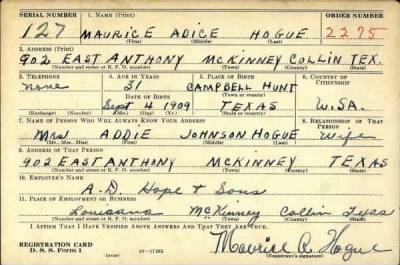 SERIAL NUMBER 1. NAME (Print) ORDER NUMBER
127 MAURICE ADICE HOGUE 2275
(First) (Middle) (Last)
2. ADDRESS (Print)
902 EAST ANTHONY McKINNEY COLLIN TEX.
(Number and street or R. F. D. number) (Town) (County) (State)
3. TELEPHONE 4. AGE IN YEARS 5. PLACE OF BIRTH 6. COUNTRY OF CITIZENSHIP
None 31 CAMPBELL HUNT
DATE OF BIRTH (Town or county)
Sept 4 1909 TEXAS U.S.A.
(Mo.) (Day) (Yr.) (State or country)
7. NAME OF PERSON WHO WILL ALWAYS KNOW YOUR ADDRESS 8. RELATIONSHIP OF THAT PERSON
Mrs ADDIE JOHNSON HOGUE Wife
(Mr., Mrs., Miss) (First) (Middle) (Last)
9. ADDRESS OF THAT PERSON
902 EAST ANTHONY McKINNEY TEXAS
(Number and street or R. F. D. number) (Town) (County) (State)
10. EMPLOYER'S NAME
A.D. Hope & Sons
11. PLACE OF EMPLOYMENT OR BUSINESS
Louisiana McKinney Collin Texas
(Number and street or R. F. D. number) (Town) (County) (State)
I AFFIRM THAT I HAVE VERIFIED ABOVE ANSWERS AND THAT THEY ARE TRUE.
REGISTRATION CARD
D. S. S. Form 1 (over) 16—17105 Maurice A. Hogue
(Registrant's signature)